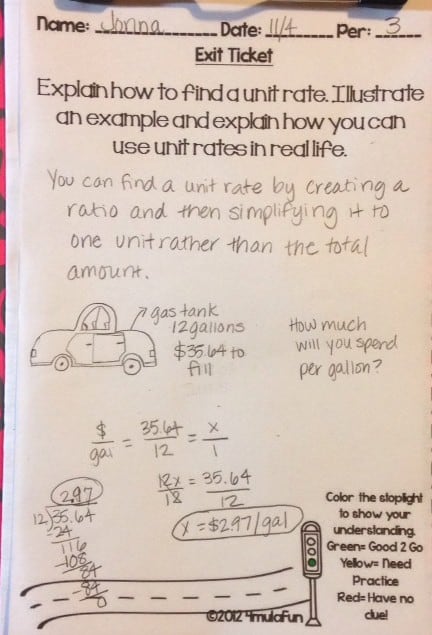 Name: Jonna Date: 11/4 Per: 3
Exit Ticket
Explain how to find a unit rate. Illustrate
an example and explain how you can
use unit rates in real life.
You can find a unit rate by creating a
ratio and then simplifying it to
one unit rather than the total
amount.
gas tank
12 gallons
$35.64 to
fill
How much
will you spend
per gallon?
$/gal = 35.64/12 = x/1
12x/12 = 35.64/12
x = $2.97/gal
2.97
12)35.64
-24
116
-108
84
-84
0
Color the stoplight
to show your
understanding.
Green= Good 2 Go
Yellow= Need
Practice
Red= Have no
clue!
©2012 4mulaFun